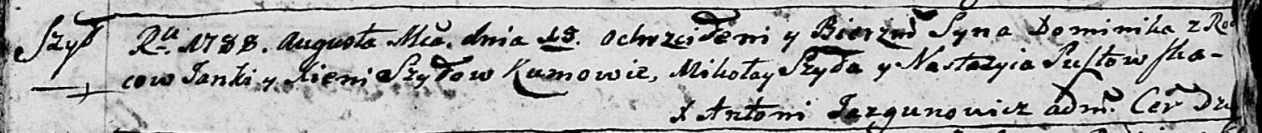 Szyd Rtt 1788. Augusta Mca. dnia 18. ochrzciłem y Bierzm Syna Dominika z Ro
cow Janki y Xieni Szydow Kumowie, Mikołay Szyda y Nastazyia Pustowska-
X Antoni Jazgunowicz adm. Cer